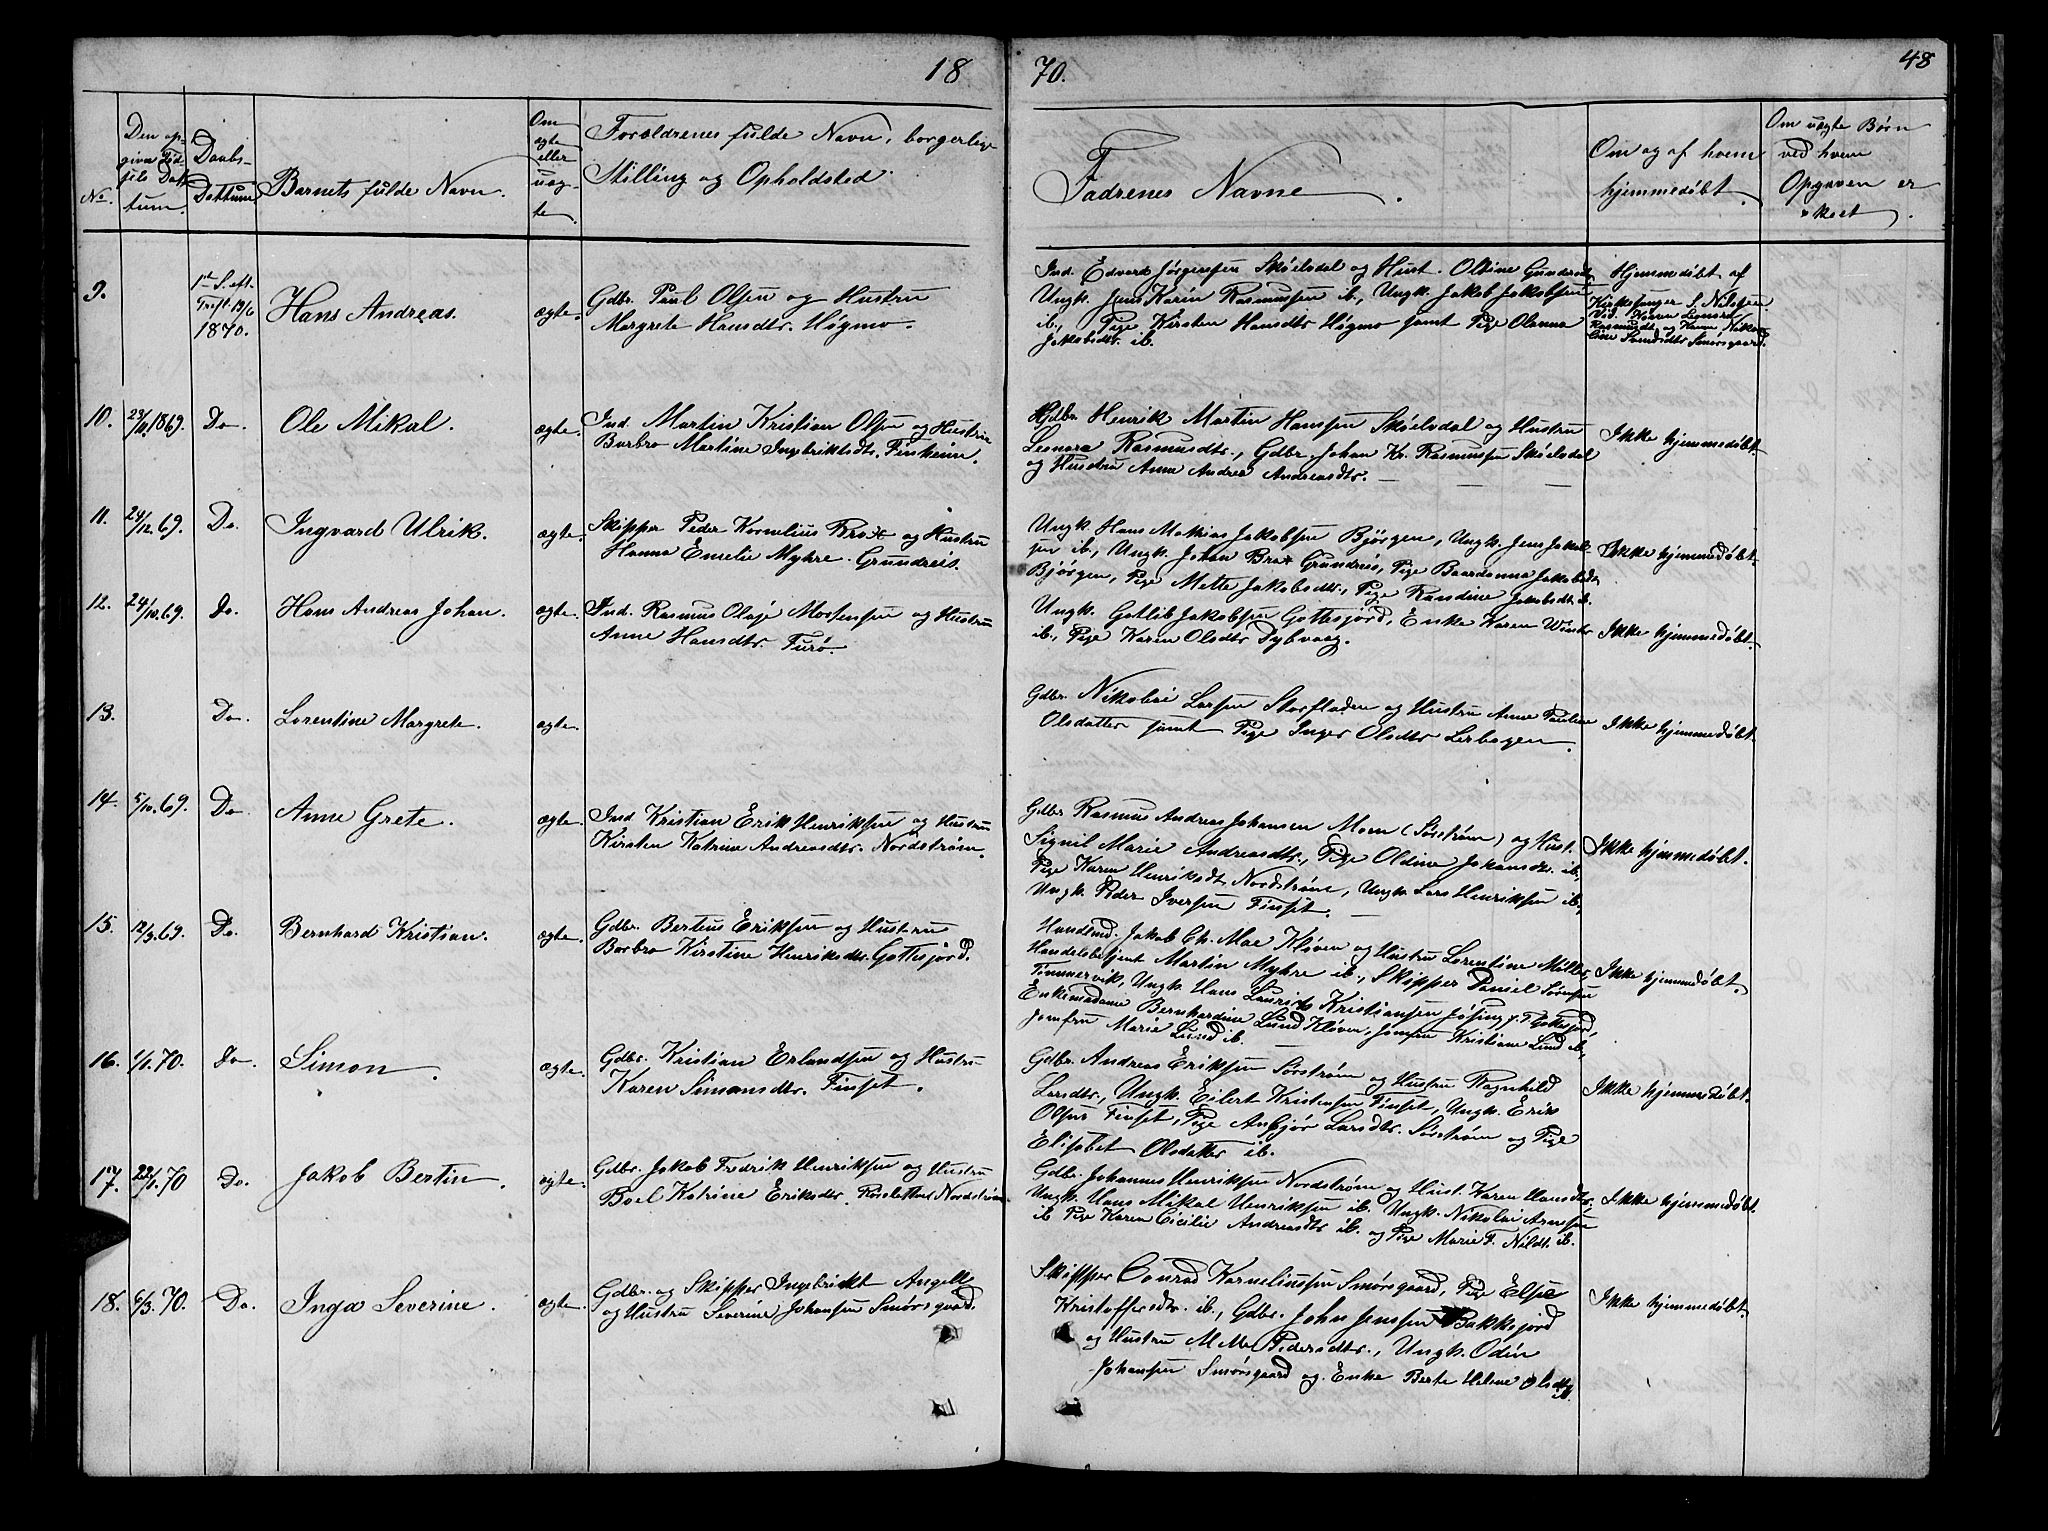 18
70.
48
No.
Den op-
given Fød-
sels Dat-
tum.
Daabs-
Dattum
Barnets fulde Navn.
Om
ægte
eller
uæg-
te.
Forældrenes fulde Navn, borgerlige
Stilling og Opholdsted.
Fadrenes Navne.
Om og af hvem
hjemmedøbt.
Om uægte Børn
ved hvem
Opgaven er
skeet.
9.
1ste S. eft.
Tref. 19/6
1870.
Hans Andreas.
ægte.
Gdbr. Paul Olsen og Hustru
Margrete Hansdtr. Høgmo.
Ind. Edvard Jørgensen Skøelvdal og Hust. Oldine
Ungk. Jens Karin Rasmussen ib., Ungk. Jakob Jakobsen
ib., Pige Kirsten Hansdtr Høgmo samt Pige Olanna
Jakobsdtr. ib.
Hjemmedøbt af
Kirkesanger S. Nilssen
Vid. Karen Leonora
Rasmusdt. og Karen Niko-
line Smørsgaard.
10.
23/11.1869.
Do.
Ole Mikal.
ægte.
Ind. Martin Kristian Olsen og Hustru
Barbro Martine Ingebriktsdtr. Finhenn.
Gdbr. Henrik Martin Hansen Skøelvdal og Hustru
Leonora Rasmusdtr., Gdbr. Johan Kr. Rasmussen Skøelvdal
og Hustru Anne Andrea Andreasdtr. — — —
Ikke hjemmedøbt.
11.
24/12.69.
Do.
Ingvard Ulrik.
ægte.
Skipper Peder Kornelius Brox og Hustru
Hanna Emelie Myhre. Grundreis.
Ungk. Hans Mathias Jakobsen Bjørgen, Ungk. Jens Jakob-
sen ib., Ungk. Johan Brox Grundreis, Pige Baardanna Jakobsdt.
Bjørgen, Pige Mette Jakobsdtr., Pige Randine Jakobsdt. ib.
Ikke hjemmedøbt.
12.
24/10.69.
Do.
Hans Andreas Johan.
ægte.
Ind. Rasmus Olaje Mortensen og Hustru
Anne Hansdtr. Furø.
Ungk. Gotlib Jakobsen Gottesjord, Enke Karen Winter
ib., Pige Karen Olsdtr Dybvaag.
Ikke hjemmedøbt.
13.
Do.
Lorentine Margrete.
ægte.
Gdbr. Nikolai Larsen Storfladen og Hustru Anne Pauline
Olsdatter samt Pige Inger Olsdtr Lerbogen.
Ikke hjemmedøbt.
14.
5/10.69.
Do.
Anne Grete.
ægte.
Ind. Kristian Erik Henriksen og Hustru
Kirsten Katrine Andreasdtr. Nordstrøm.
Gdbr. Rasmus Andreas Johansen Moen (Sørstrøm) og Hust.
Signil Marie Andreasdtr., Pige Oldine Johansdtr. ib.,
Pige Karen Henriksdtr Nordstrøm, Ungk. Lars Henriksen ib.,
Ungk. Peder Iversen Finset. —
Ikke hjemmedøbt.
15.
12/9.69.
Do.
Bernhard Kristian.
ægte.
Gdbr. Berteus Eriksen og Hustru
Barbro Kirstine Henriksdtr. Gottesjord.
Handlsmd. Jakob Ch. Moe Kløven og Hustru Lorentine Møller,
Handelsbetjent Martin Myhre ib., Skipper Daniel Sørensen
Timmervik, Ungk. Hans Laurids Kristiansen Gottesjord,
Enkemadame Bernhardine Lund Kløven, Jomfru Kristiane Lund ib.,
Jomfru Marie Lund ib. —
Ikke hjemmedøbt.
16.
1/1.70.
Do.
Simon.
ægte.
Gdbr. Kristian Erlandsen og Hustru
Karen Simonsdtr. Finset.
Gdbr. Andreas Eriksen Sørstrøm og Hustru Ragnhild
Larsdtr., Ungk. Eilert Kristensen Finset, Ungk. Erik
Olsen Finset, Pige Anbjør Larsdtr. Sørstrøm og Pige
Elisabet Olsdatter ib.
Ikke hjemmedøbt.
17.
22/1.70
Do.
Jakob Bertin.
ægte.
Gdbr. Jakob Fredrik Henriksen og Hustru
Boel Katrine Eriksdtr. Nordstrøm
Gdbr. Johannes Henriksen Nordstrøm og Hust. Karen Hansdtr.,
Ungk. Hans Mikal Henriksen ib. Ungk. Nikolai Arnsen
ib. Pige Karen Cicilie Andreasdtr ib. og Pige Marie F. Nilsdt. ib.
Ikke hjemmedøbt.
18.
6/3.70.
Do.
Inga Severine.
ægte.
Gdbr. og Skipper Ingebrikt Angell
og Hustru Severine Johansen Smørsgaard.
Skipper Conrad Korneliussen Smørsgaard, Pige Else
Kristoffersdtr. ib., Gdbr. John Jenssen Bakkejord
og Hustru Mette Pedersdtr., Ungk. Odin
Johansen Smørsgaard og Enke Berte Helene Olsdtr
Ikke hjemmedøbt.